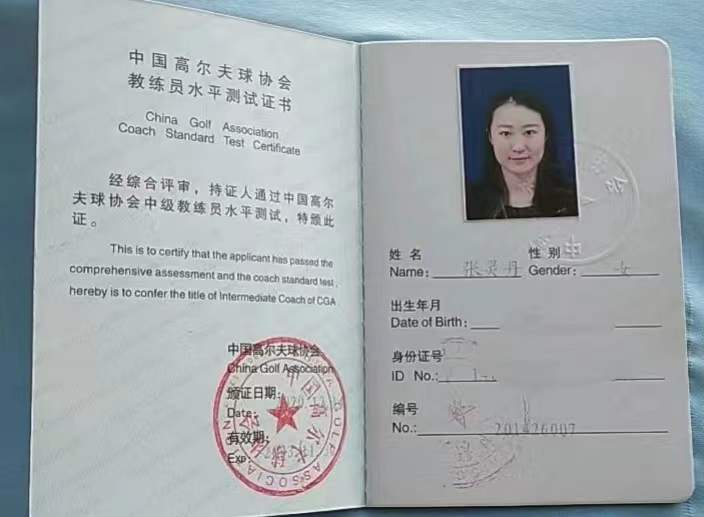 中国高尔夫球协会
教练员水平测试证书
China Golf Association
Coach Standard Test Certificate
经综合评审，持证人通过中国高尔
夫球协会中级教练员水平测试，特颁此
证。
This is to certify that the applicant has passed the
comprehensive assessment and the coach standard test,
hereby is to confer the title of Intermediate Coach of CGA
中国高尔夫球协会
China Golf Association
颁证日期：
Date:
有效期：
Exp:
姓 名 性 别
Name: 张灵丹 Gender: 女
出生年月
Date of Birth:
身份证号
ID No.:
编号
No.: 201426007